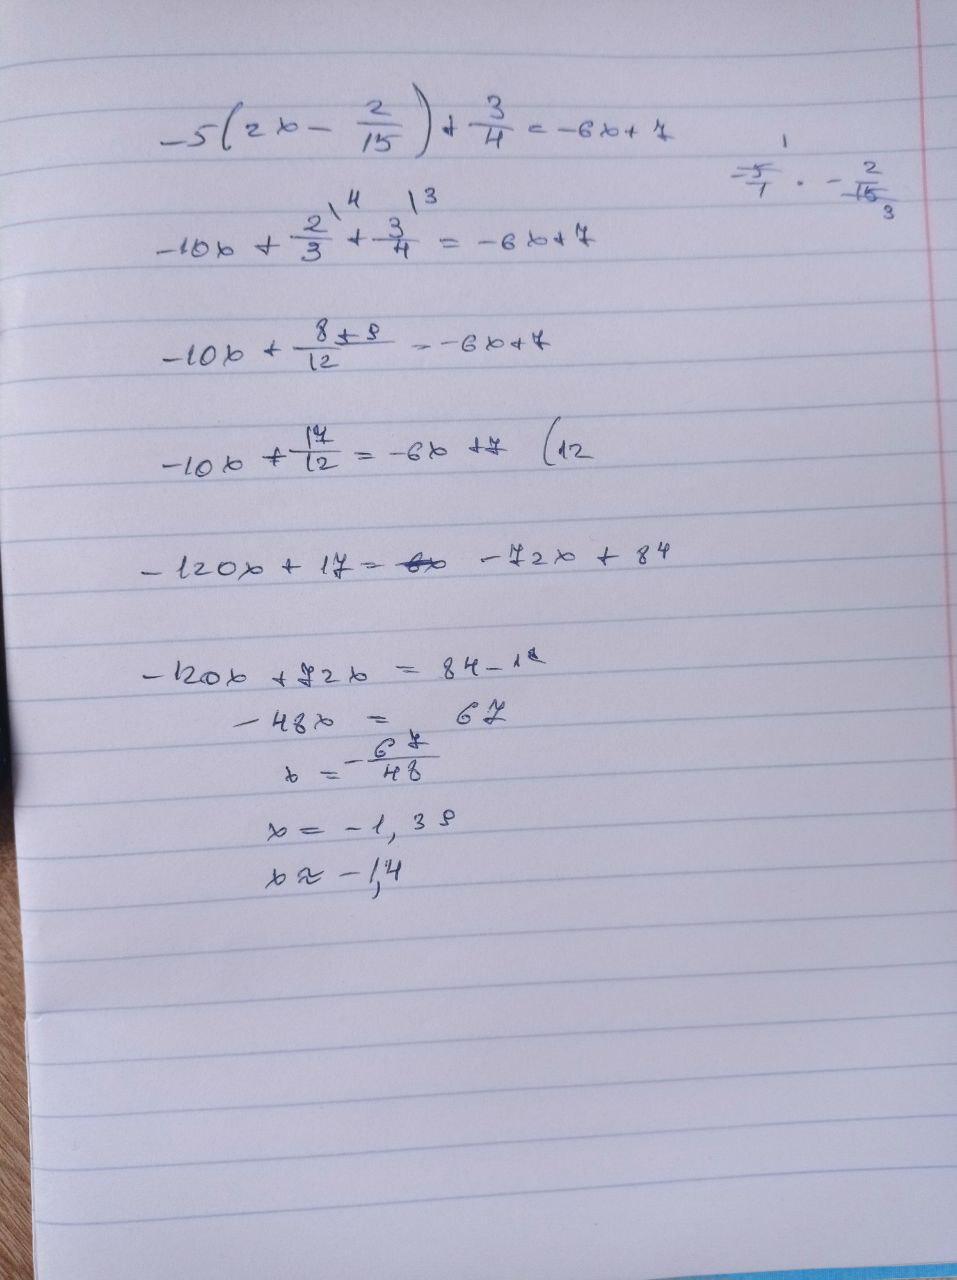 -5(2x - 2/15) + 3/4 = -6x + 7
-5/1 · -2/15 1 3
-10x + 2/3 \4 + 3/4 \3 = -6x + 7
-10x + 8+9/12 = -6x + 7
-10x + 17/12 = -6x + 7 (12
-120x + 17 = -72x + 84
-120x + 72x = 84 -
-48x = 67
x = -67/48
x = -1,39
x ≈ -1,4